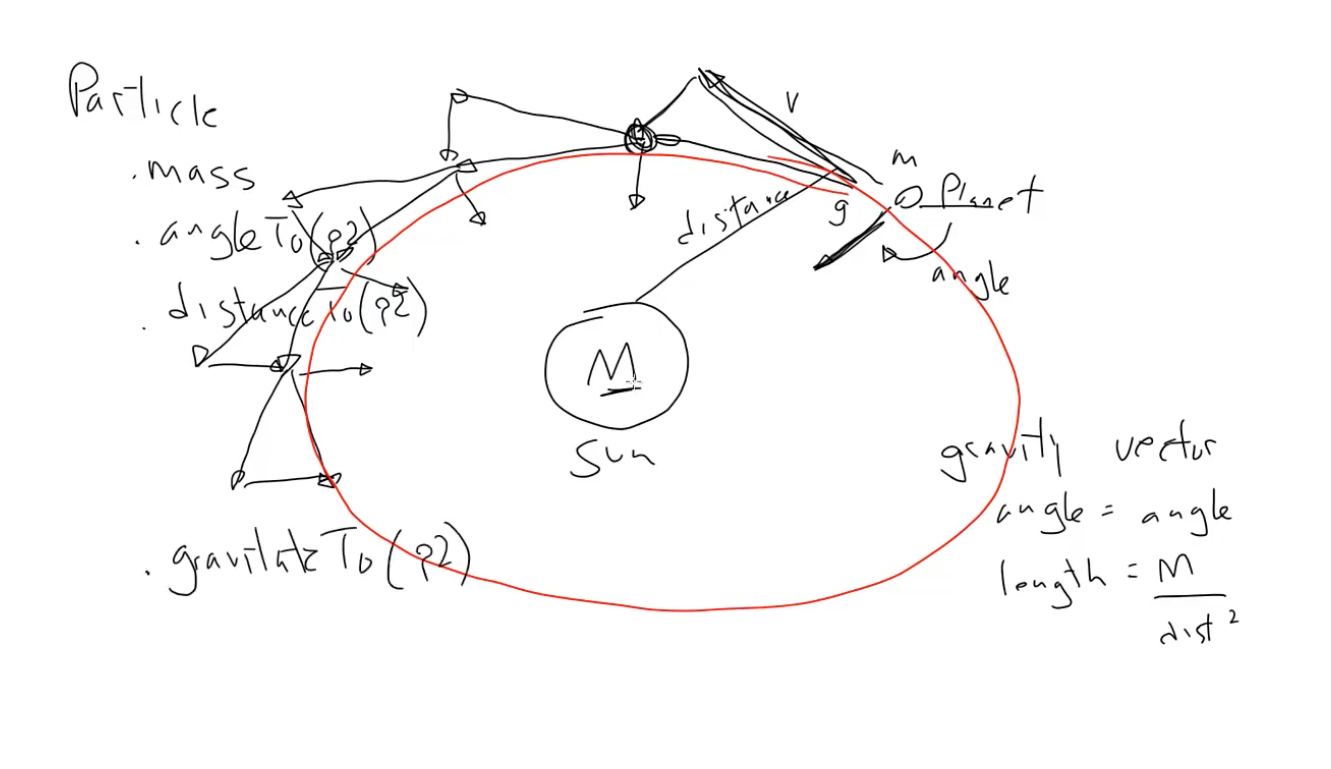 Particle
.mass
.angleTo(p2)
.distanceTo(p2)
.gravitateTo(p2)
v
m
Planet
distance
g
angle
M
Sun
gravity vector
angle = angle
length = M
dist²